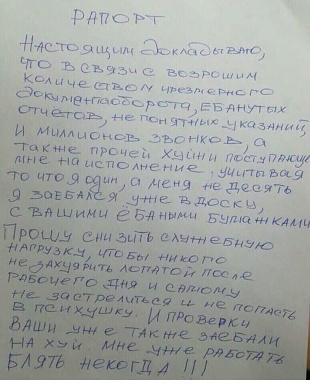 РАПОРТ
НАСТОЯЩИМ ДОКЛАДЫВАЮ,
ЧТО В СВЯЗИ С ВОЗРОШИМ
КОЛИЧЕСТВОМ ЧРЕЗМЕРНОГО
ДОКУМЕНТАОБОРОТА, ЕБАНУТЫХ
ОТЧЁТОВ, НЕПОНЯТНЫХ УКАЗАНИЙ,
И МИЛЛИОНОВ ЗВОНКОВ, А
ТАКЖЕ ПРОЧЕЙ ХУЙНИ ПОСТУПАЮЩЕ
МНЕ НА ИСПОЛНЕНИЕ, УЧИТЫВАЯ
ТО ЧТО Я ОДИН, А МЕНЯ НЕ ДЕСЯТЬ
Я ЗАЕБАЛСЯ УЖЕ В ДОСКУ,
С ВАШИМИ ЁБАНЫМИ БУМАЖКАМИ
ПРОШУ СНИЗИТЬ СЛУЖЕБНУЮ
НАГРУЗКУ, ЧТОБЫ НИКОГО
НЕ ЗАХУЯРИТЬ ЛОПАТОЙ ПОСЛЕ
РАБОЧЕГО ДНЯ И САМОМУ
НЕ ЗАСТРЕЛИТЬСЯ И НЕ ПОПАСТЬ
В ПСИХУШКУ. И ПРОВЕРКИ
ВАШИ УЖЕ ТАКЖЕ ЗАЕБАЛИ
НА ХУЙ. МНЕ УЖЕ РАБОТАТЬ
БЛЯТЬ НЕКОГДА!!!